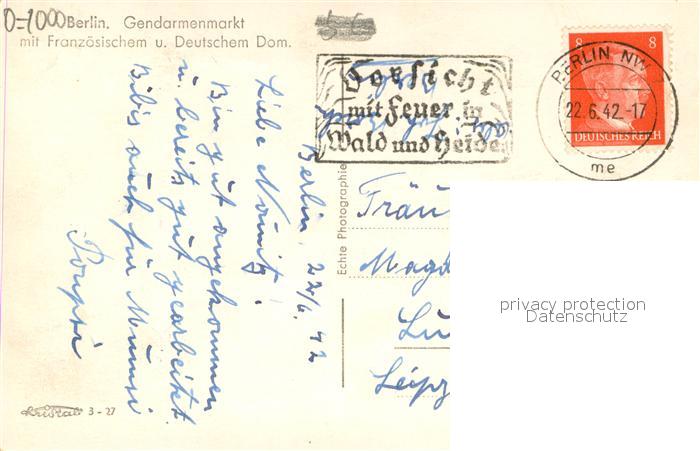 D-1000
Berlin. Gendarmenmarkt
mit Französischem u. Deutschem Dom.
Vorsicht
mit Feuer in
Wald und Heide
8 8
DEUTSCHES REICH
BERLIN NW
22.6.42-17
me
Berlin, 22/6. 42
Liebe
Bin gut angekommen
u. bereits gut gearbeitet
Bibis auch für
Echte Photographie
Fräu
Magd
Leipz
privacy protection
Datenschutz
3-27